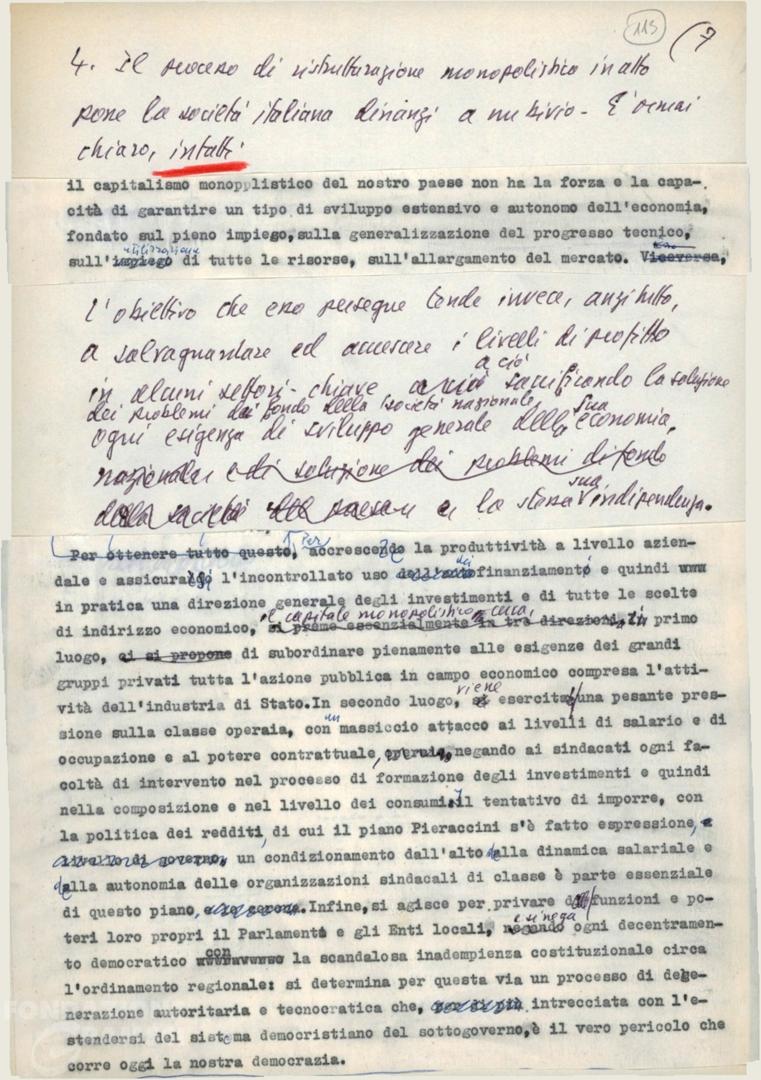 113
7
4. Il processo di ristrutturazione monopolistica in atto
pone la società italiana dinanzi a un bivio - È ormai
chiaro, infatti
il capitalismo monopplistico del nostro paese non ha la forza e la capa-
cità di garantire un tipo di sviluppo estensivo e autonomo dell'economia,
fondato sul pieno impiego,sulla generalizzazione del progresso tecnico,
utilizzazione
sull'impiego di tutte le risorse, sull'allargamento del mercato. Viceversa,
L'obiettivo che esso persegue tende invece, anzitutto,
a salvaguardare ed accrescere i livelli di profitto
a ciò
in alcuni settori-chiave sacrificando la soluzione
dei problemi di fondo della società nazionale,
sua
ogni esigenza di sviluppo generale della economia,
nazionale e di soluzione dei problemi di fondo
sua
della società e la stessa indipendenza.
Per
Per ottenere tutto questo, accrescendo la produttività a livello azien-
dei
dale e assicurarsi l'incontrollato uso finanziamenti e quindi
in pratica una direzione generale degli investimenti e di tutte le scelte
il capitale monopolistico cerca,
di indirizzo economico, si preme essenzialmente in tre direzioni. In primo
luogo, ci si propone di subordinare pienamente alle esigenze dei grandi
gruppi privati tutta l'azione pubblica in campo economico compresa l'atti-
viene
vità dell'industria di Stato.In secondo luogo, si esercita una pesante pres-
un
sione sulla classe operaia, con massiccio attacco ai livelli di salario e di
occupazione e al potere contrattuale, operaio, negando ai sindacati ogni fa-
coltà di intervento nel processo di formazione degli investimenti e quindi
nella composizione e nel livello dei consumi. Il tentativo di imporre, con
la politica dei redditi, di cui il piano Pieraccini s'è fatto espressione, a
livello di governo, un condizionamento dall'alto della dinamica salariale e
della autonomia delle organizzazioni sindacali di classe è parte essenziale
di questo piano, .Infine,si agisce per privare di funzioni e po-
e si nega
teri loro propri il Parlamento e gli Enti locali, negando ogni decentramen-
con
to democratico la scandalosa inadempienza costituzionale circa
l'ordinamento regionale: si determina per questa via un processo di dege-
nerazione autoritaria e tecnocratica che, intrecciata con l'e-
stendersi del sistema democristiano del sottogoverno,è il vero pericolo che
corre oggi la nostra democrazia.